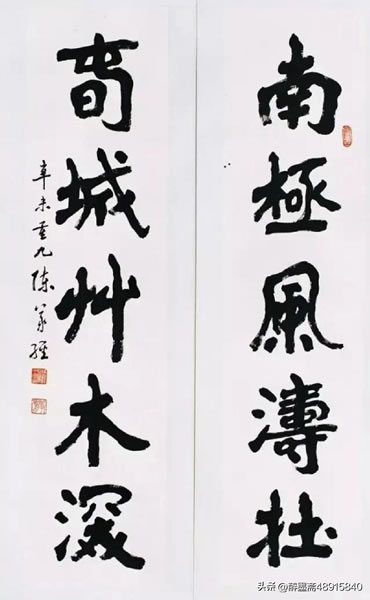 南極風濤壯
高城艸木深
辛未重九陳
头条 @墨斋48915840